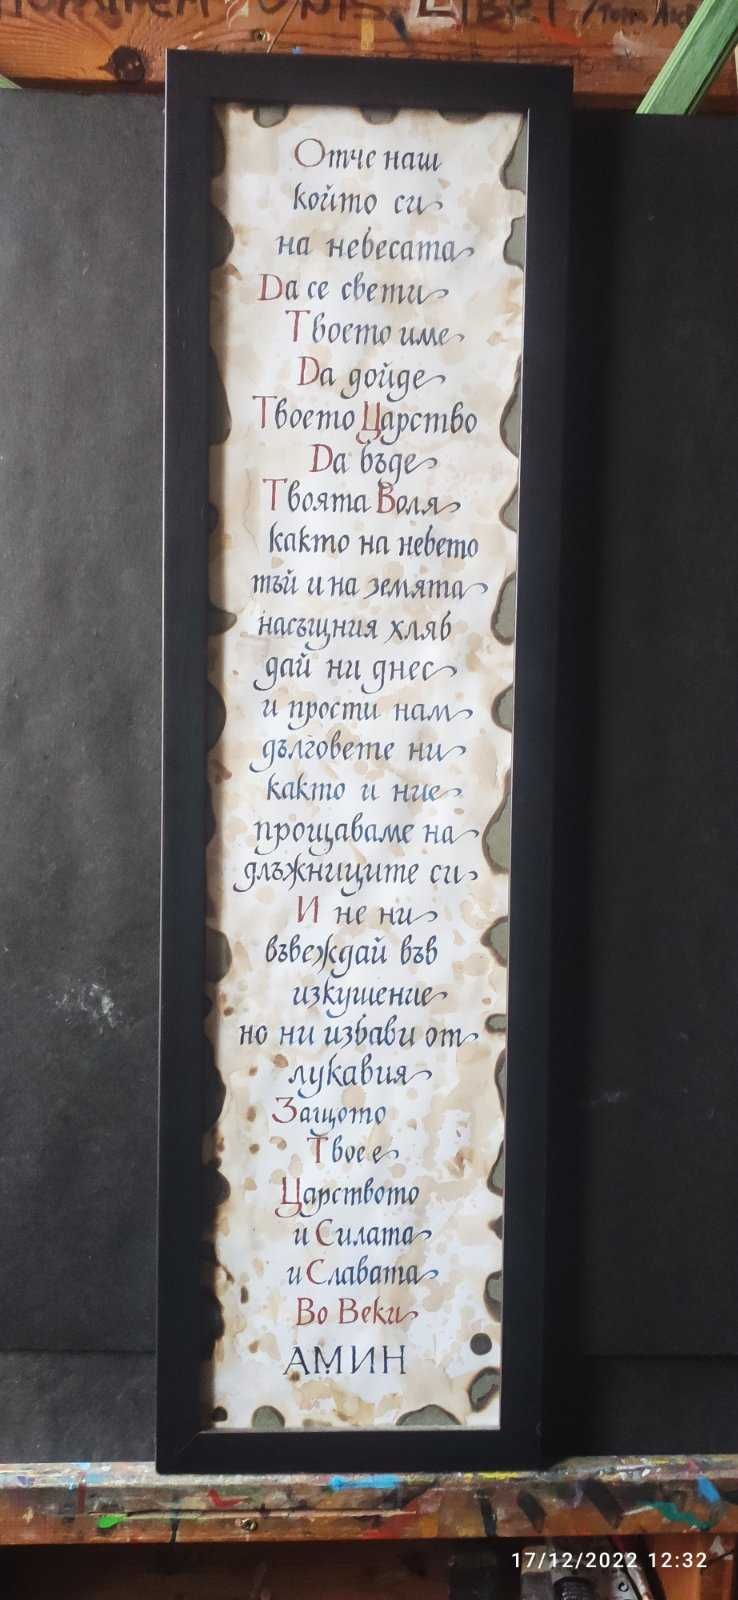 Отче наш
който си
на небесата
Da се свети
Твоето име
Da дойде
Твоето Царство
Da бъде
Твоята Воля
както на небето
тъй и на земята
насъщния хляб
дай ни днес
и прости нам
дълговете ни
както и ние
прощаваме на
длъжниците си
И не ни
въвеждай във
изкушение
но ни избави от
лукавия
Защото
Твое е
Царството
и Силата
и Славата
Во Веки
АМИН
17/12/2022 12:32